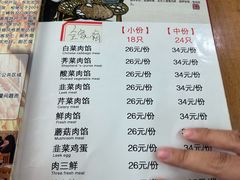 【小份】 【中份】
18只 24只
白菜肉馅 26元/份 34元/份
Chinese cabbage meat
荠菜肉馅 26元/份 34元/份
Shepherd's-purse meat
酸菜肉馅 26元/份 34元/份
Pickled vegetable meat
韭菜肉馅 26元/份 34元/份
Leek meat
芹菜肉馅 26元/份 34元/份
Celery meat
鲜肉馅 26元/份 34元/份
Fresh meat
蘑菇肉馅 26元/份
Mushroom meat
韭菜鸡蛋 26元/份
Leek egg
肉三鲜 26元/份
Three fresh meat